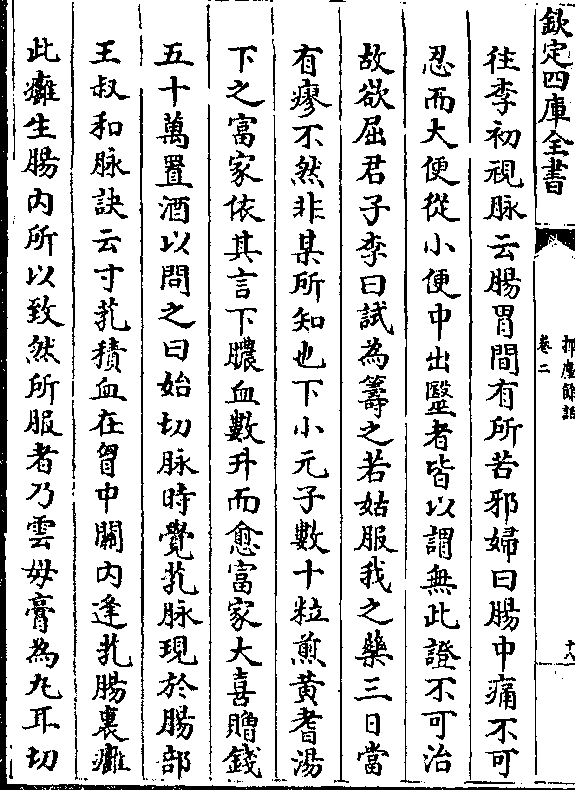 欽定四庫全書
揮麈餘話
卷二
十八
往李初視脉云腸胃間有所苦邪婦曰腸中痛不可
忍而大便從小便中出醫者皆以謂無此證不可治
故欲屈君子李曰試為籌之若姑服我之藥三日當
有瘳不然非某所知也下小元子數十粒煎黃耆湯
下之富家依其言下膿血數升而愈富家大喜贈錢
五十萬置酒以問之曰始切脉時覺芤脉現於腸部
王叔和脉訣云寸芤積血在胷中關内逢芤腸裏癰
此癰生腸内所以致然所服者乃雲母膏為丸耳切